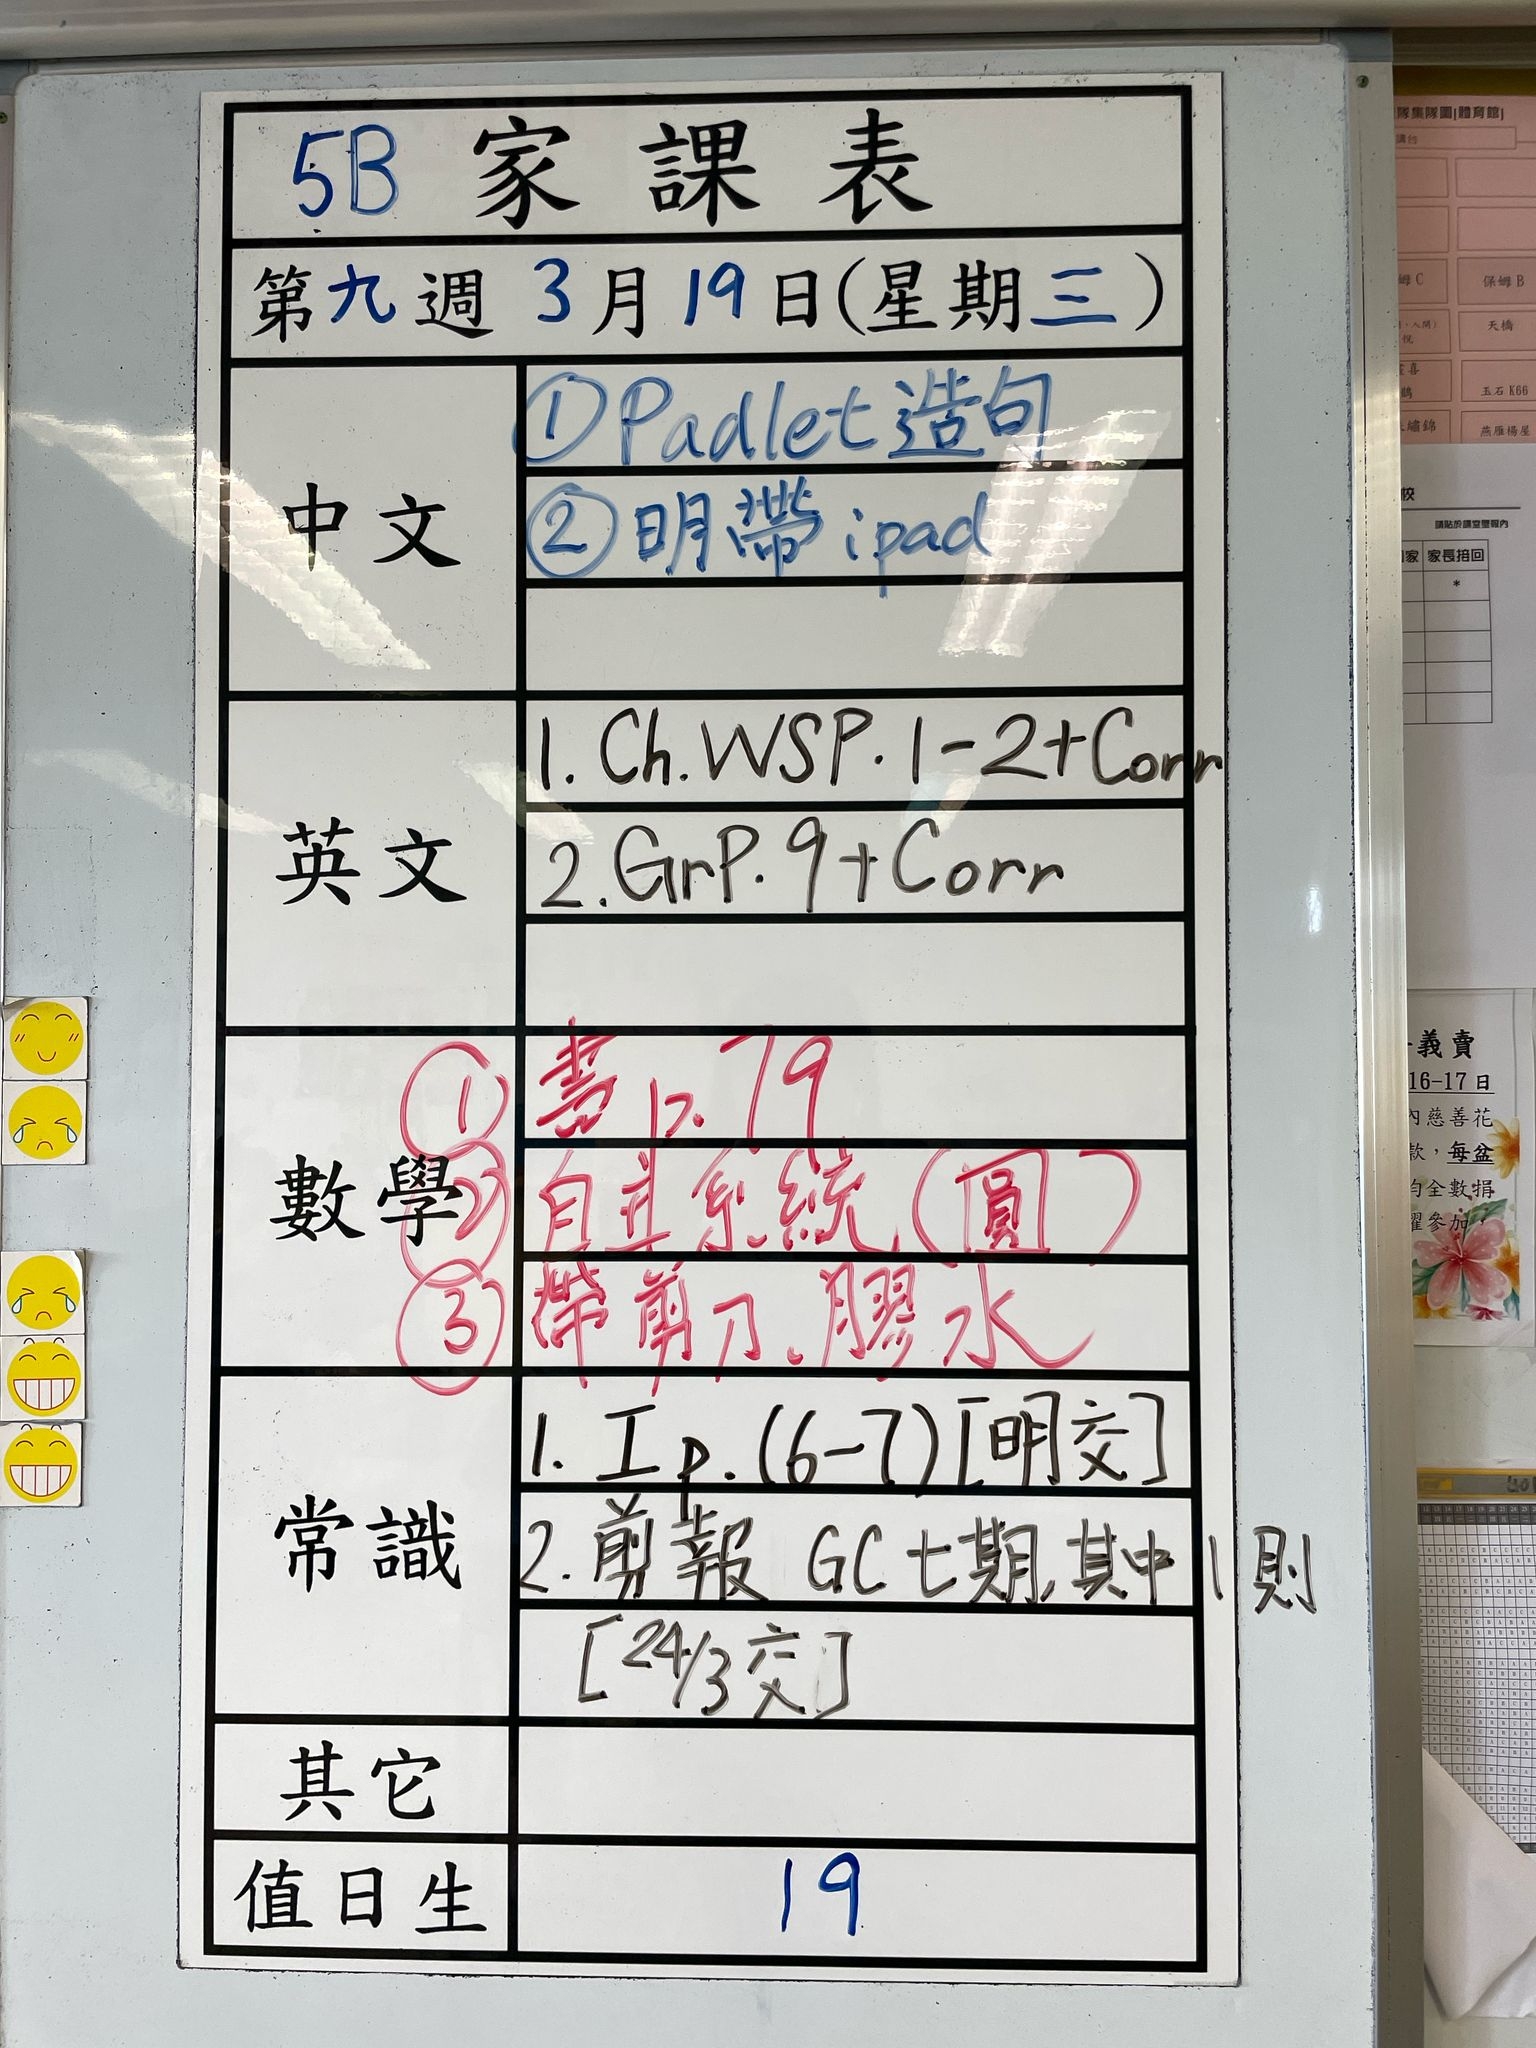 5B 家課表
第九週 3月19日(星期三)
中文
①Padlet造句
②明帶ipad
英文
1. Ch. WSP. 1-2+Corr
2. GrP. 9+Corr
數學
① 書p. 79
② 自主系統(圓)
③ 帶剪刀、膠水
常識
1. 工p. (6-7) [明交]
2. 剪報 GC七期,其中1則
[24/3交]
其它
值日生
19
隊集隊圖[體育館]
講台
姆C
保姆B
天橋
玉石K66
繡錦
燕雁楊屋
校
請貼於課室壁報內
家
家長接回
*
義賣
16-17日
內慈善花
款,每盆
全數捐
參加,